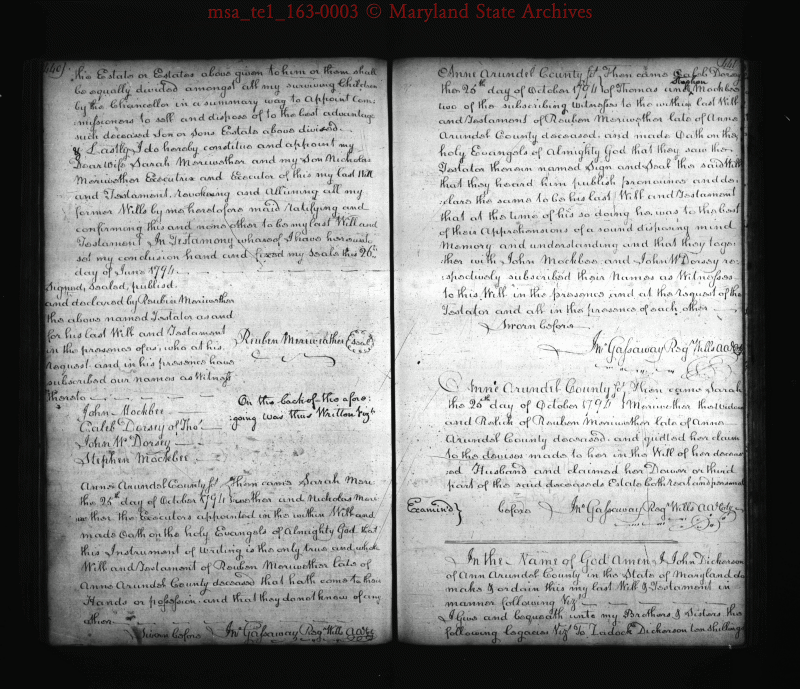 msa_te1_163-0003 © Maryland State Archives
440).
his Estate or Estates above given to him or them shall
be equally divided amongst all my surviving Children
by the Chancellor in a summary way to Appoint Com:
missioners to sell and dispose of to the best advantage
such deceased Son or Sons Estate above divised.
& Lastly I do hereby constitue and appoint my
Dear wife Sarah Meriwether and my Son Nicholas
Meriwether Executrix and Executor of this my last Will
and Testament, revokeing and Allnuing all my
former Wills by me heretofore maid ratifying and
confirming this and none other to be my last Will and
Testament In Testamony whareof I have hereunto
set my conclusion hand and fixed my seale this 26th
day of June 1794.
Signed, sealed, publisd.
and declared by Reubin Meriwether
the above named Testator as and
for his last Will and Testament
in the presence of us; who at his
request and in his presence have
subscribed our names as Witness
thereto
Reuben Meriweather Seal
John Mockbee
Caleb Dorsey of Thos
John Wn Dorsey
Stephen Mockbee
On the back of the afore:
going was thus Written Vizt
Anne Arundel County Sct Then came Sarah Meri
the 25th day of October 1794 wether and Nicholas Meri
wether the Executors appointed in the within Will and
made Oath on the holy Evangels of Almighty God that
this Instrument of Writing is the only true and whole
Will and Testament of Reuben Meriwether late of
Anne Arundel County deceased that hath come to their
Hands or possession and that they do not know of any
other
Sworn before Jno Gassaway Regr Wills AA Cty
441
Anne Arundel County Sct Then came Caleb Dorsey
Stephen
the 25th day of October 1794 of Thomas and Mockbee
two of the subscribing Witnesses to the within last Will
and Testament of Reuben Meriwether late of Anne
Arundel County deceased. and made Oath on the
holy Evangels of Almighty God that they saw the
Testator therein named Sign and Seal the said Will
that they heard him publish pronounce and de:
clare the same to be his last Will and Testament
that at the time of his so doing he was to the best
of their Apprehensions of a sound disposing mind
Memory and understanding and that they toge:
ther with John Mockbee and John Wn Dorsey re:
spectively subscribed their Names as Witnesses
to this Will in the presence and at the request of the
Testator and all in the presence of each other
Sworn before
Jno Gassaway Regr Wills AA Cty
Anne Arundel County Sct Then came Sarah
the 25th day of October 1794 Meriwether the widow
and Relick of Reuben Meriwether late of Anne
Arundel County deceased. and quitted her claim
to the devises made to her in the Will of her deceas
ed Husband and claimed her Dower or third
part of the said deceaseds Estate both real and personal
Examind} before Jno Gassaway Regr Wills AA Cty
In the Name of God Amen I John Dickerson
of Ann Arundel County in the State of Maryland do
make & ordain this my last Will & Testament in
manner following Vizt
I Give and bequeath unto my Brothers & Sisters the
following legacies Vizt To Zadock Dickerson ten shillings